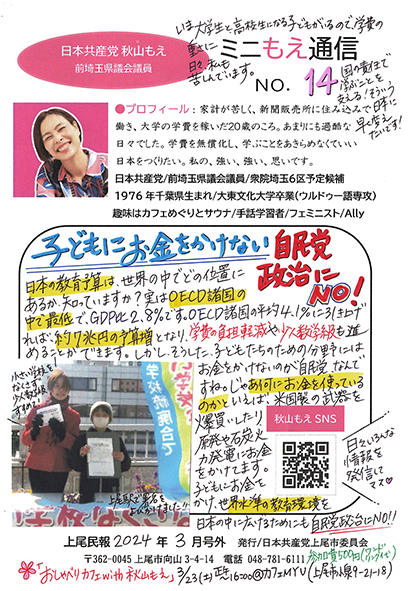 日本共産党 秋山もえ
前埼玉県議会議員
いま大学生と高校生になる子どもがいるので、学費の
重さに
日々、私も
苦しんでいます。
ミニもえ通信
NO. 14
国の責任で
学ぶことを
支える！そういう
日本に
早く変え
たいです！
●プロフィール：家計が苦しく、新聞販売所に住み込みで
働き、大学の学費を稼いだ20歳のころ。あまりにも過酷な
日々でした。学費を無償化し、学ぶことをあきらめなくていい
日本をつくりたい。私の、強い、強い、思いです。
日本共産党/前埼玉県議会議員/衆院埼玉6区予定候補
1976年千葉県生まれ/大東文化大学卒業(ウルドゥー語専攻)
趣味はカフェめぐりとサウナ/手話学習者/フェミニスト/Ally
子どもにお金をかけない自民党
政治に
NO!
日本の教育予算は、世界の中でどの位置に
あるか、知っていますか？実はOECD諸国の
中で最低で、GDP比2.8%です。OECD諸国の平均4.1%に引き上げ
れば、約7兆円の予算増となり、学費の負担軽減や少人数学級も進
めることができます。しかし、そうした、子どもたちのための分野には
お金をかけないのが自民党なんで
すね。じゃあ何にお金を使っている
のかといえば、米国製の武器を
爆買いしたり
原発や石炭火
力発電にお金
をかけてます。
子どもにお金を
かけ、世界水準の教育環境を
日本の中に広げるためにも自民党政治にNO!!
小さい学校を
なくさず
少人数学級
すすめて！
学校統廃合で
上尾駅で署名を
よびかけました!!
秋山もえ SNS
日々いろんな
情報を
発信して
ます♡
上尾民報 2024年 3月号外 発行/日本共産党上尾市委員会
〒362-0045 上尾市向山3-4-14 電話 048-781-6111/
参加費500円(ワンドリンク付)
「おしゃべりカフェwith秋山もえ」 3/23(土) 16:00@カフェMYU (上尾市泉9-21-18)